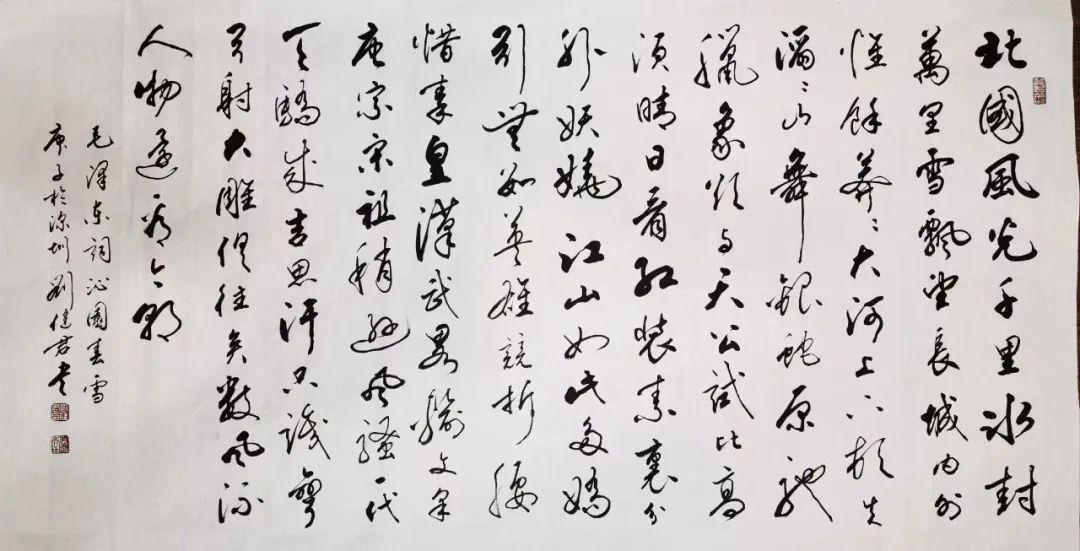 北國風光千里冰封
萬里雪飄望長城内外
惟餘莽〻大河上下頓失
滔〻山舞銀蛇原馳
臘象欲与天公試比高
須晴日看紅裝素裹分
外妖嬈江山如此多嬌
引無數英雄競折腰
惜秦皇漢武略輸文采
唐宗宋祖稍遜風騷一代
天驕成吉思汗只識彎
弓射大雕俱往矣數風流
人物還看今朝
毛澤東詞沁園春雪
庚子於深圳劉健君書